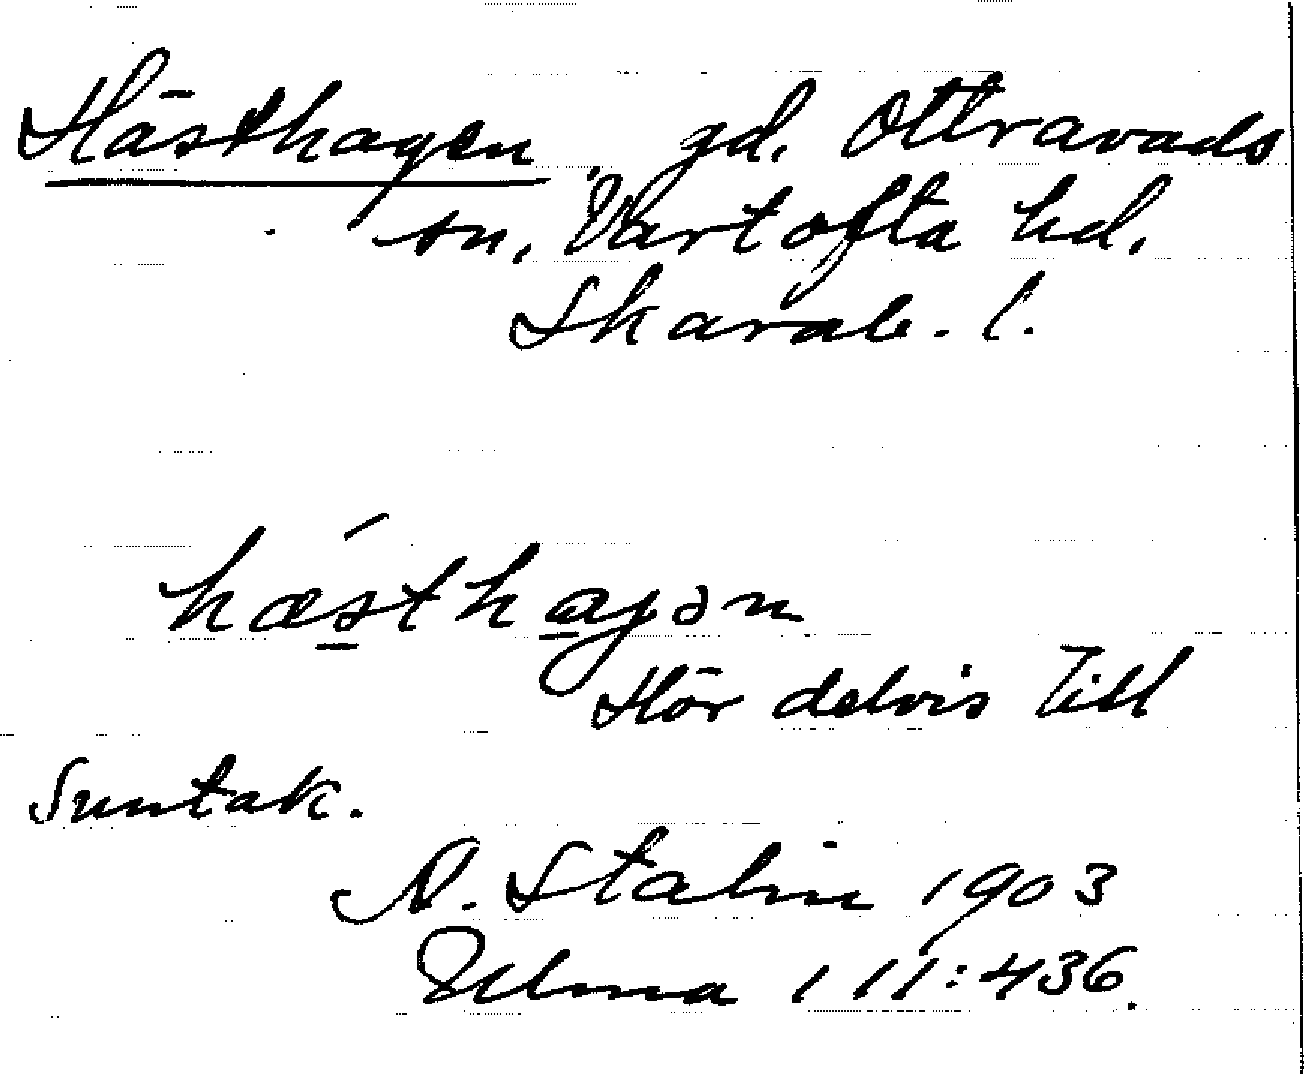 Hästhagen, gd. Ottravads
sn, Vartofta hd.
Skarab. l.
hǽsthaɡən
Hör delvis till
Suntak.
A. Stalin 1903
Ulma 111:436.